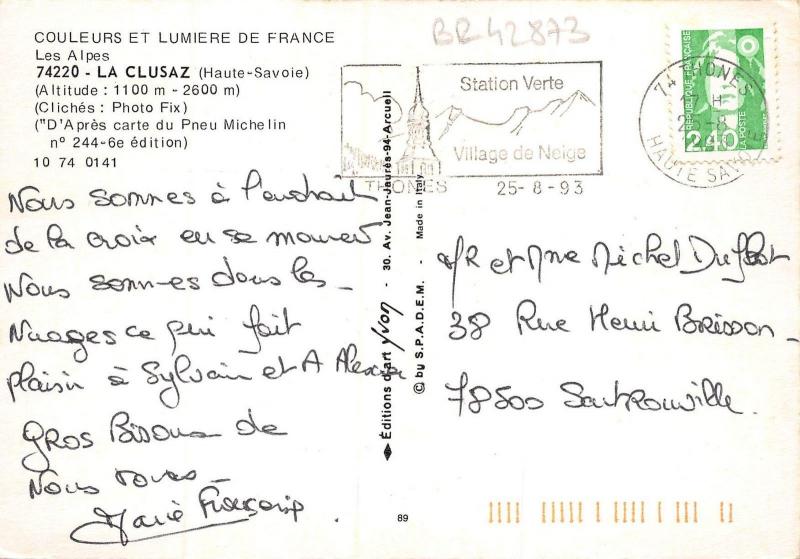 COULEURS ET LUMIERE DE FRANCE
Les Alpes
74220 - LA CLUSAZ (Haute-Savoie)
(Altitude : 1100 m - 2600 m)
(Clichés : Photo Fix)
("D'Après carte du Pneu Michelin
n° 244-6e édition)
10 74 0141
Nous sommes à l'endroit
de la croix en se moment
Nous sommes dans les
Nuages ce qui fait
plaisir à Sylvain et A Alexis
Gros Bisous de
Nous tous
Marie Françoise
BR42873
Station Verte
Village de Neige
THONES 25-8-93
74 THONES
HAUTE SAVOIE
REPUBLIQUE FRANÇAISE
2,40
LA POSTE
Editions d'art Yvon - 30. Av. Jean-Jaurès-94-Arcueil
© by S.P.A.D.E.M. - Made in Italy
MR et Mme Michel Duflot
38 Rue Henri Brisson
78500 Sartrouville.
89